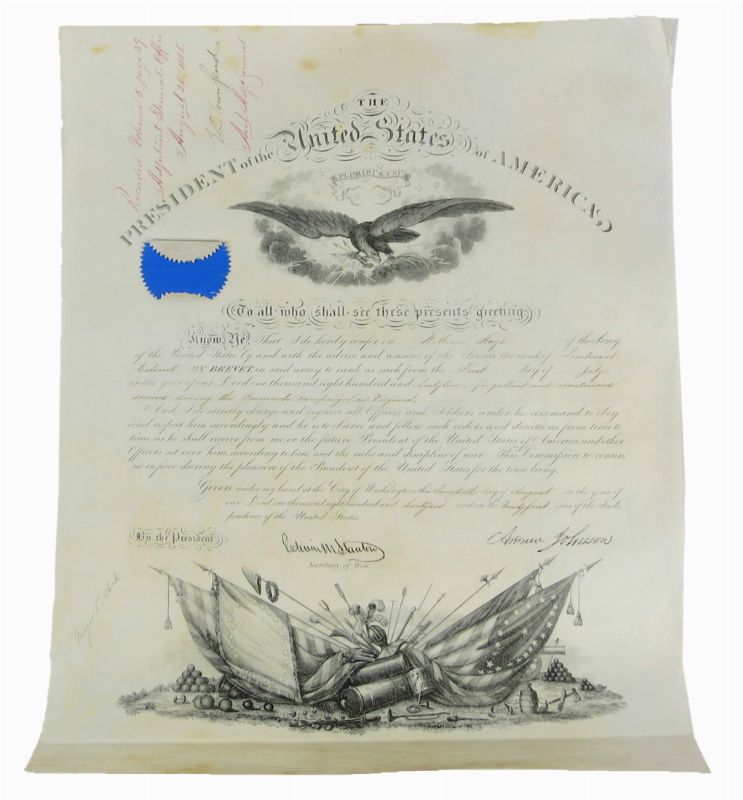 Recorded Volume 5 page 39
Adjutant General's Office
August 20, 1866.
THE
United States
PRESIDENT of the of AMERICA,
E PLURIBUS UNUM
To all who shall see these presents greeting:
Know Ye, That I do hereby confer on William Hays of the Army
of the United States by and with the advice and consent of the Senate the rank of Lieutenant
Colonel BY BREVET in said army to rank as such from the First day of July
in the year of our Lord one thousand eight hundred and sixty two, for gallant and meritorious
services during the Peninsula campaign, in Virginia.
And I do strictly charge and require all Officers and Soldiers under his command to obey
and respect him accordingly and he is to observe and follow such orders and directions from time to
time as he shall receive from me or the future President of the United States of America and other
Officers set over him according to law and the rules and discipline of war. This Commission to contin
ue in force during the pleasure of the President of the United States for the time being.
Given under my hand at the City of Washington this day of August in the year of
our Lord one thousand eight hundred and sixty six and in the Ninety first year of the Inde
pendence of the United States.
By the President
Andrew Johnson
Edwin M Stanton
Secretary of War